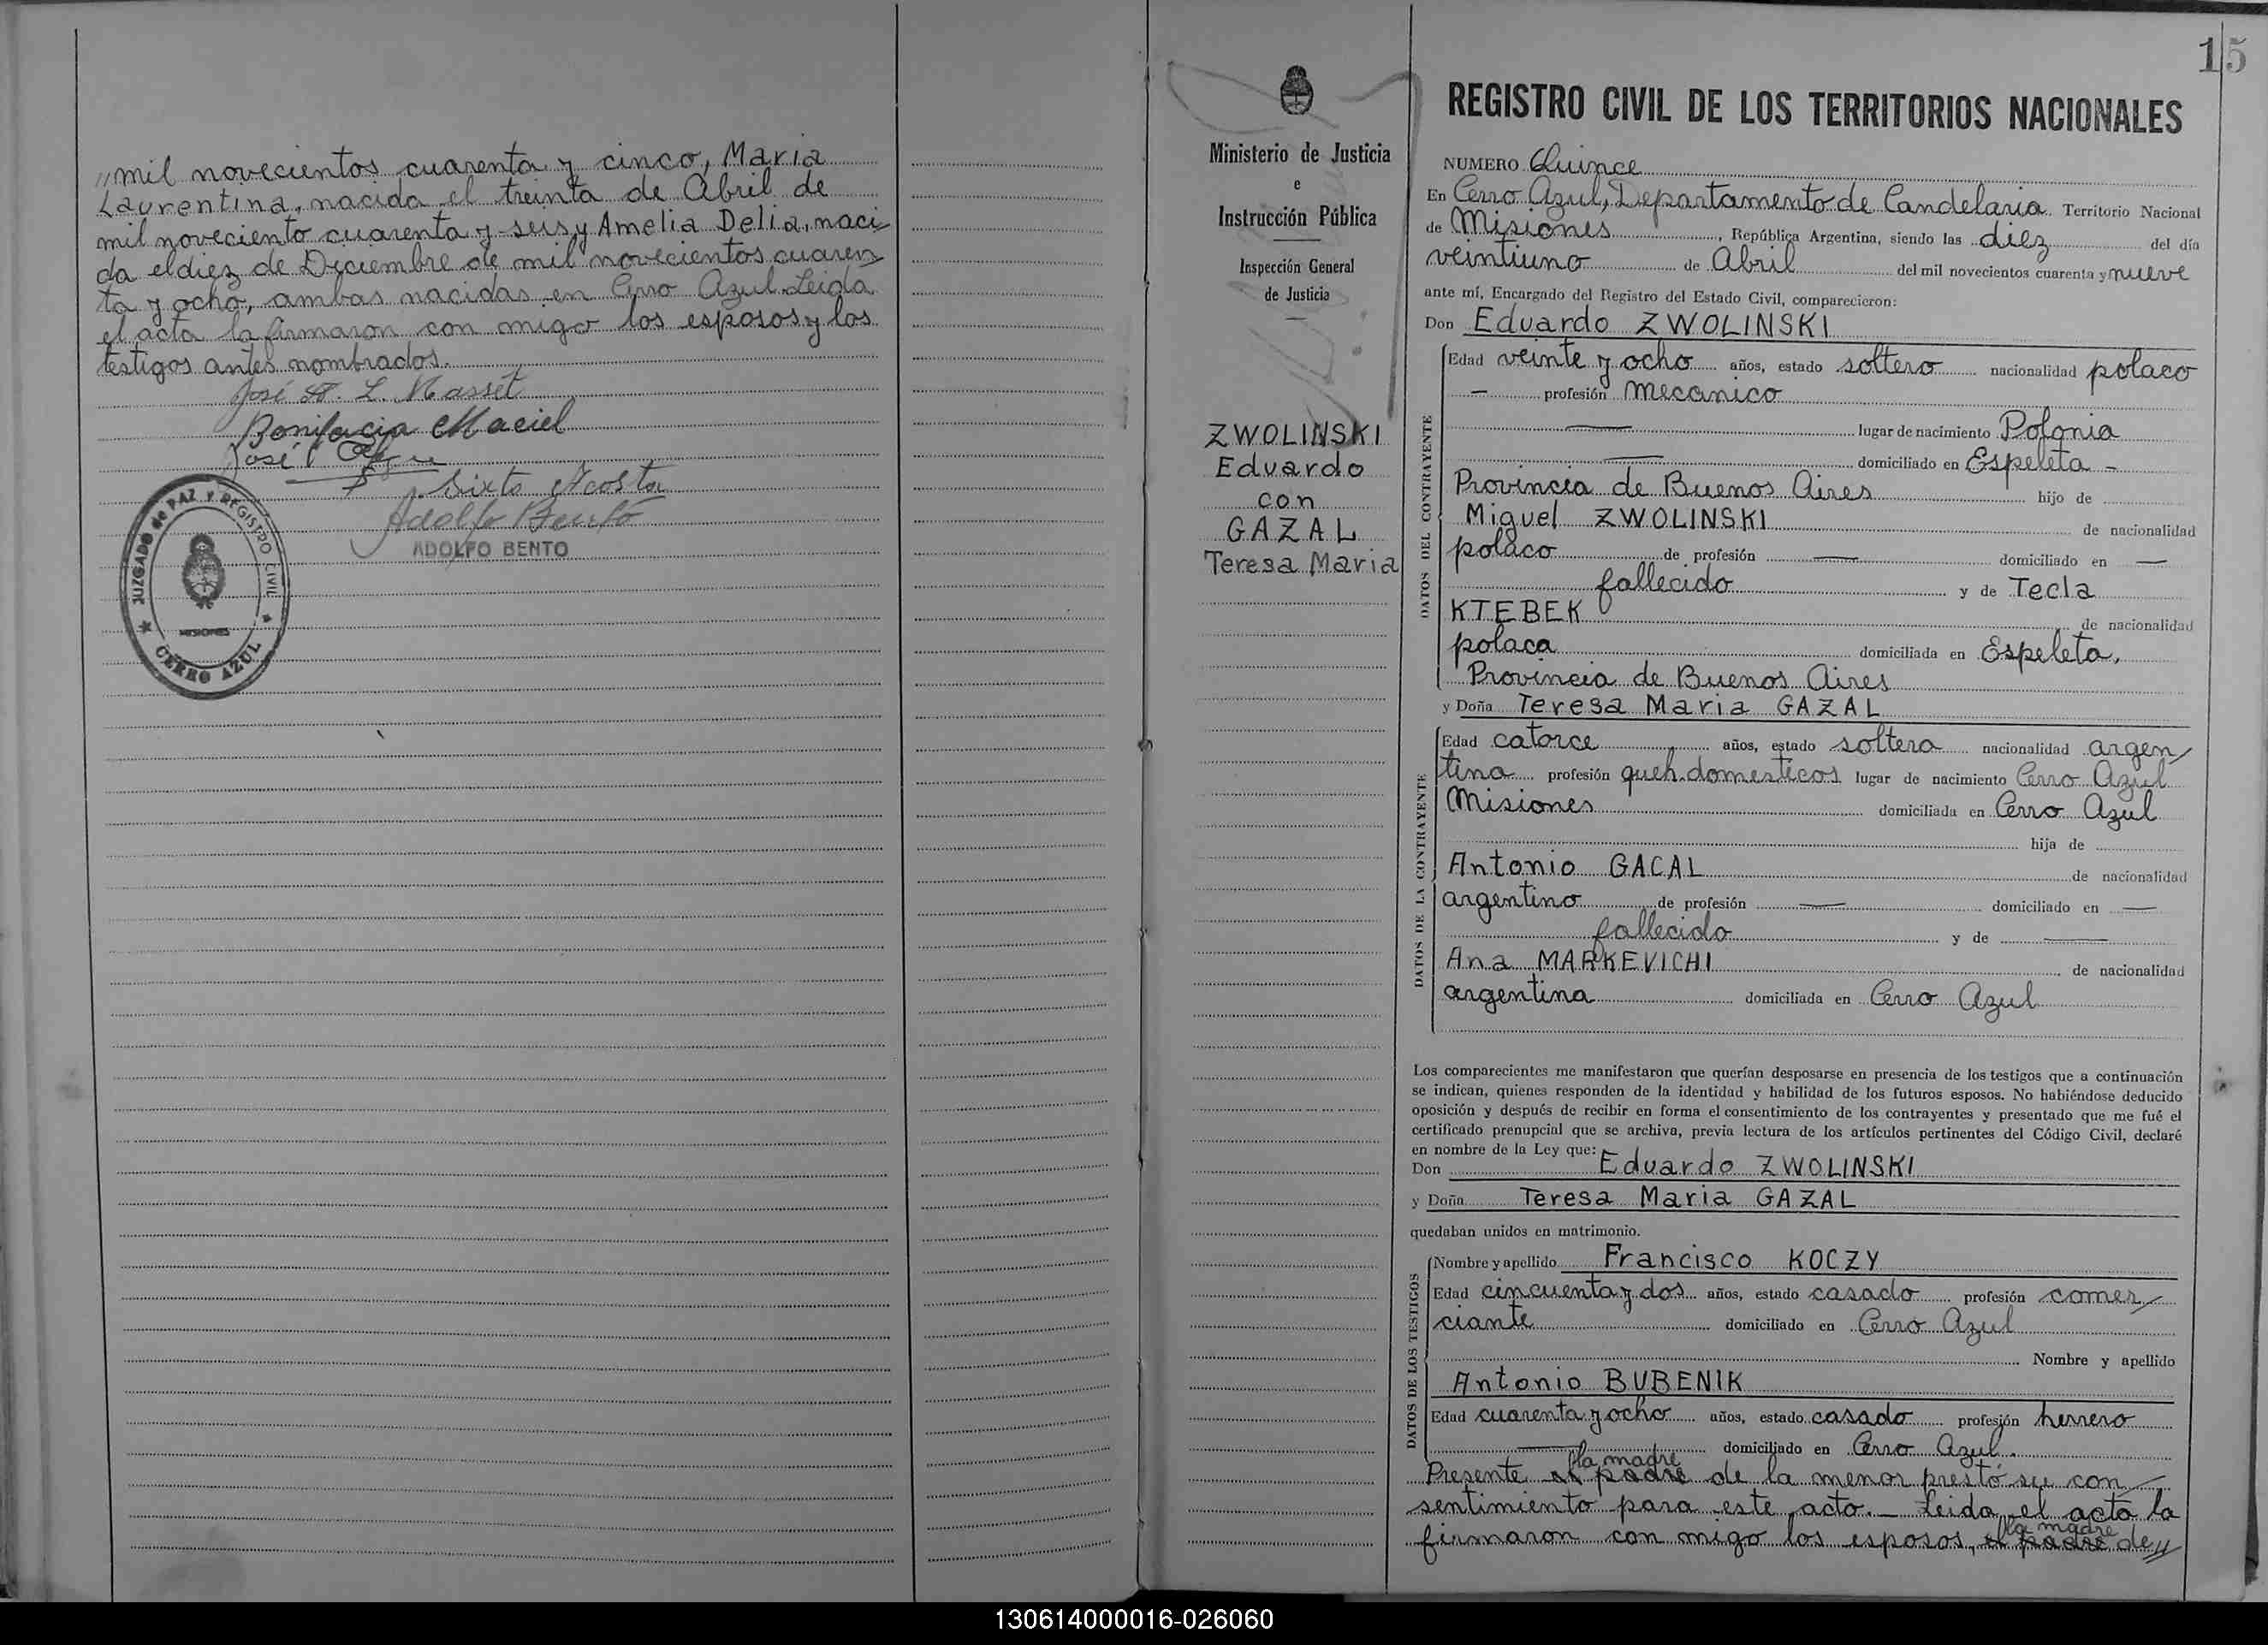 mil novecientos cuarenta y cinco, Maria
Laurentina, nacida el treinta de Abril de
mil noveciento cuarenta y seis, y Amelia Delia, naci
da el diez de Diciembre de mil novecientos cuaren
ta y ocho, ambas nacidas en Cerro Azul. Leida
el acta la firmaron con migo los esposos y los
testigos antes nombrados.
José A. L. Masset
Bonifacia Maciel
José
Sixto Acosta
Adolfo Bento
ADOLFO BENTO
JUZGADO de PAZ Y REGISTRO CIVIL
MISIONES
CERRO AZUL
15
Ministerio de Justicia
e
Instrucción Pública
Inspección General
de Justicia
ZWOLINSKI
Eduardo
con
GAZAL
Teresa Maria
REGISTRO CIVIL DE LOS TERRITORIOS NACIONALES
NUMERO Quince
En Cerro Azul, Departamento de Candelaria Territorio Nacional
de Misiones, República Argentina, siendo las diez del día
veintiuno de Abril del mil novecientos cuarenta y nueve
ante mí, Encargado del Registro del Estado Civil, comparecieron:
Don Eduardo ZWOLINSKI
DATOS DEL CONTRAYENTE
Edad veinte y ocho años, estado soltero nacionalidad polaco
— profesión mecanico
— lugar de nacimiento Polonia
— domiciliado en Espeleta -
Provincia de Buenos Aires hijo de
Miguel ZWOLINSKI de nacionalidad
polaco de profesión — domiciliado en —
fallecido y de Tecla
KTEBEK de nacionalidad
polaca domiciliada en Espeleta,
Provincia de Buenos Aires
y Doña Teresa Maria GAZAL
DATOS DE LA CONTRAYENTE
Edad catorce años, estado soltera nacionalidad argen
tina profesión queh. domesticos lugar de nacimiento Cerro Azul
Misiones domiciliada en Cerro Azul
hija de
Antonio GACAL de nacionalidad
argentino de profesión — domiciliado en —
fallecido y de —
Ana MARKEVICHI de nacionalidad
argentina domiciliada en Cerro Azul
Los comparecientes me manifestaron que querían desposarse en presencia de los testigos que a continuación
se indican, quienes responden de la identidad y habilidad de los futuros esposos. No habiéndose deducido
oposición y después de recibir en forma el consentimiento de los contrayentes y presentado que me fué el
certificado prenupcial que se archiva, previa lectura de los artículos pertinentes del Código Civil, declaré
en nombre de la Ley que:
Don Eduardo ZWOLINSKI
y Doña Teresa Maria GAZAL
quedaban unidos en matrimonio.
DATOS DE LOS TESTIGOS
Nombre y apellido Francisco KOCZY
Edad cincuenta y dos años, estado casado profesión comer
ciante domiciliado en Cerro Azul
Nombre y apellido
Antonio BUBENIK
Edad cuarenta y ocho años, estado casado profesión herrero
— domiciliado en Cerro Azul.
la madre
Presente el padre de la menor prestó su con
sentimiento para este acto. — Leida el acta la
la madre
firmaron con migo los esposos, el padre de
130614000016-026060